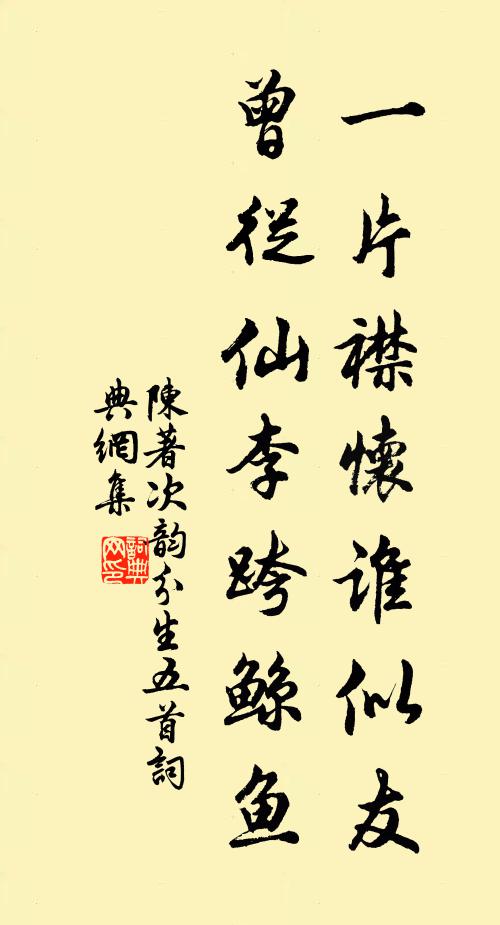 一片襟懷誰似友
曾從仙李跨鲸鱼
陳著次韵分生五首詞
典網集
詞典網印